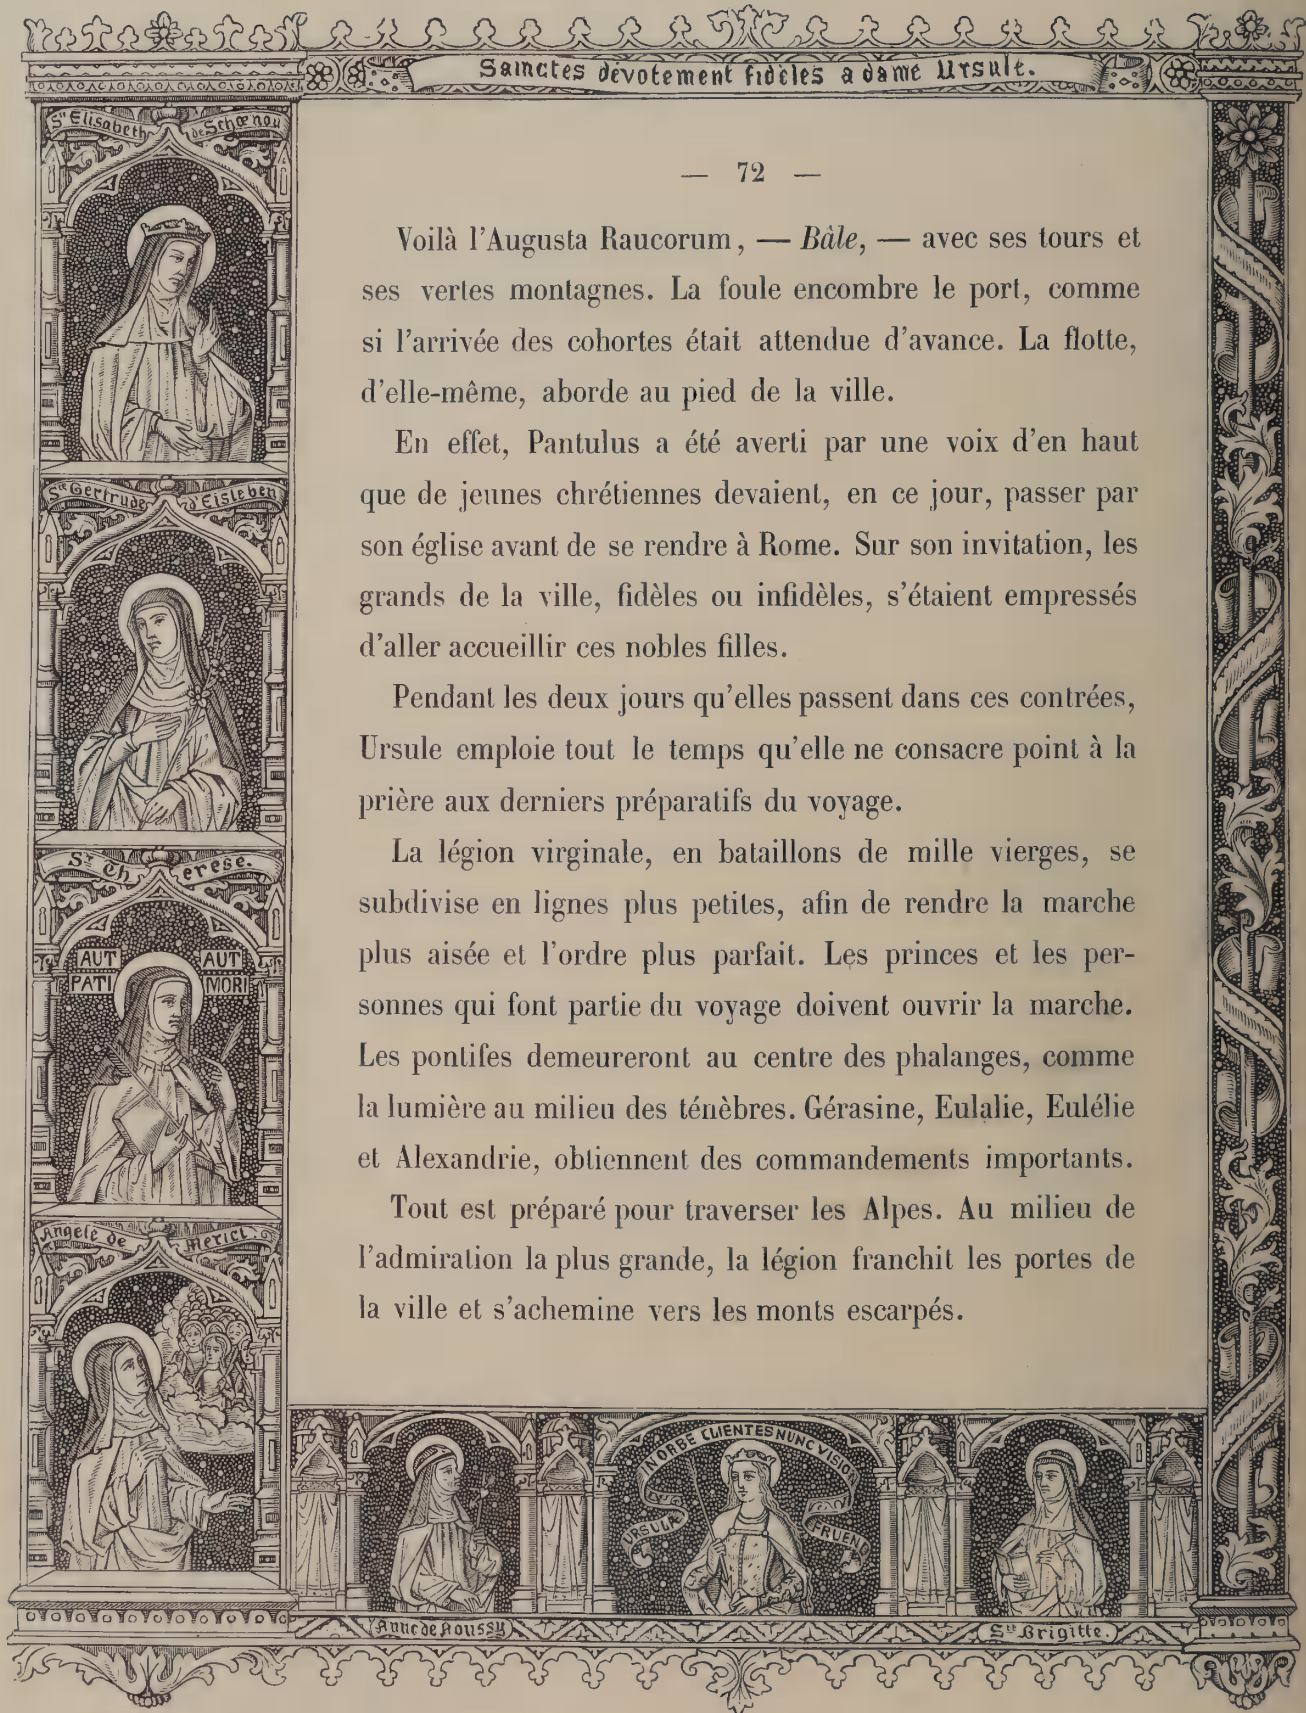 Sainctes dévotement fidèles a dame Ursule.
Ste Elisabeth de Schœnou
— 72 —
Voilà l'Augusta Raucorum, — Bâle, — avec ses tours et
ses vertes montagnes. La foule encombre le port, comme
si l'arrivée des cohortes était attendue d'avance. La flotte,
d'elle-même, aborde au pied de la ville.
En effet, Pantulus a été averti par une voix d'en haut
que de jeunes chrétiennes devaient, en ce jour, passer par
son église avant de se rendre à Rome. Sur son invitation, les
grands de la ville, fidèles ou infidèles, s'étaient empressés
d'aller accueillir ces nobles filles.
Pendant les deux jours qu'elles passent dans ces contrées,
Ursule emploie tout le temps qu'elle ne consacre point à la
prière aux derniers préparatifs du voyage.
La légion virginale, en bataillons de mille vierges, se
subdivise en lignes plus petites, afin de rendre la marche
plus aisée et l'ordre plus parfait. Les princes et les per-
sonnes qui font partie du voyage doivent ouvrir la marche.
Les pontifes demeureront au centre des phalanges, comme
la lumière au milieu des ténèbres. Gérasine, Eulalie, Eulélie
et Alexandrie, obtiennent des commandements importants.
Tout est préparé pour traverser les Alpes. Au milieu de
l'admiration la plus grande, la légion franchit les portes de
la ville et s'achemine vers les monts escarpés.
Ste Gertrude d'Eisleben
Ste Thérèse.
AUT AUT
PATI MORI
Angele de Merici.
IN ORBE CLIENTES NUNC VISION
URSULA FRUEND
Anne de Roussy
Ste Brigitte.